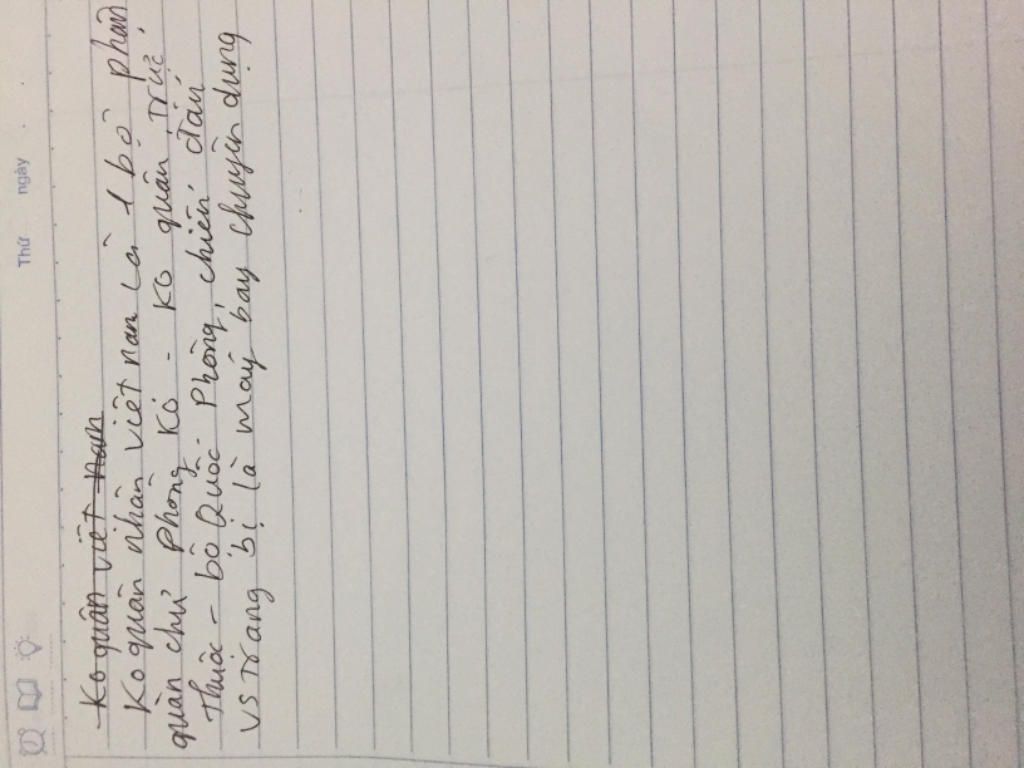 Thứ ngày
Ko quân việt nam
Ko quân nhân việt nam là 1 bộ phận
quân chủ phòng Kó - Ko quân trực
thuộc - bộ Quốc Phòng, chiến đấu
vs trang bị là máy bay chuyên dụng